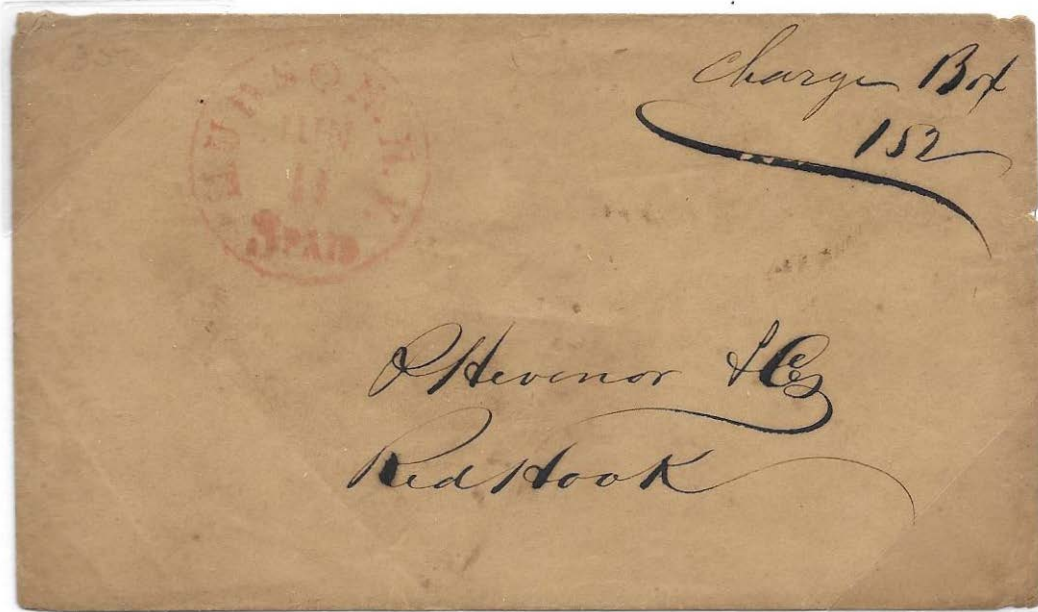 HUDSON. N.Y.
JUN
11
3 PAID
Charge Box
152
P Hevenor & Co
Red Hook